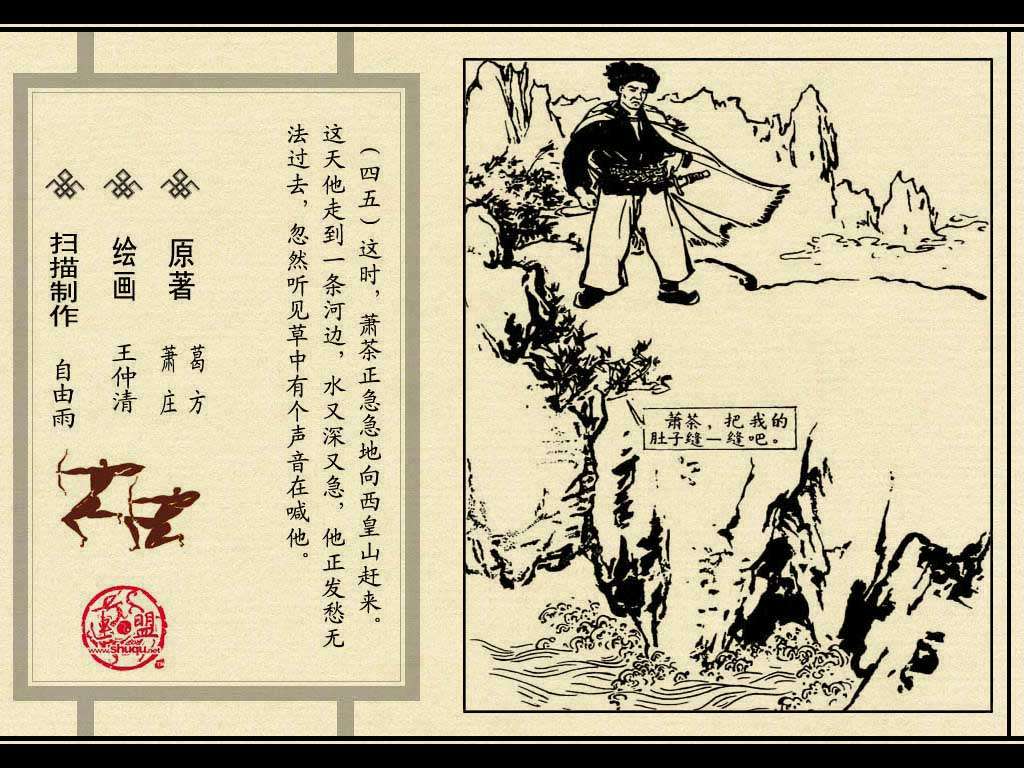 （四五）这时，萧茶正急急地向西皇山赶来。
这天他走到一条河边，水又深又急，他正发愁无
法过去，忽然听见草中有个声音在喊他。
原著 葛方
萧庄
绘画 王仲清
扫描制作 自由雨
萧茶，把我的
肚子缝一缝吧。
连盟
www.shuqu.net